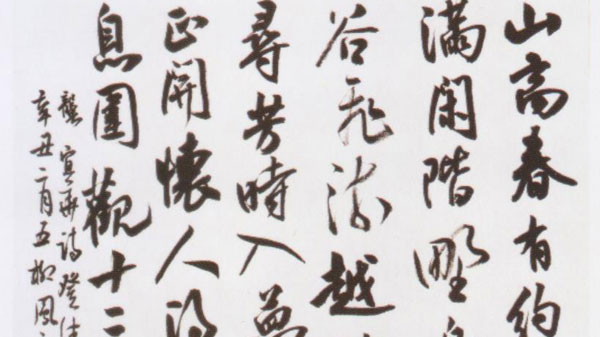 山高春有約
滿閑階野
谷飛流越
尋芳時入
正開懷人
息園觀十二
龔詩登
辛丑二月五柳風